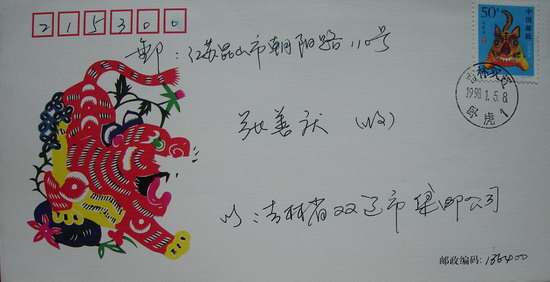 215300
50分
中国邮政
邮：江苏昆山市朝阳路110号
吉林双辽
1998.1.5.8
卧虎 1
张善 (收)
：吉林省双辽市集邮公司
邮政编码：136400